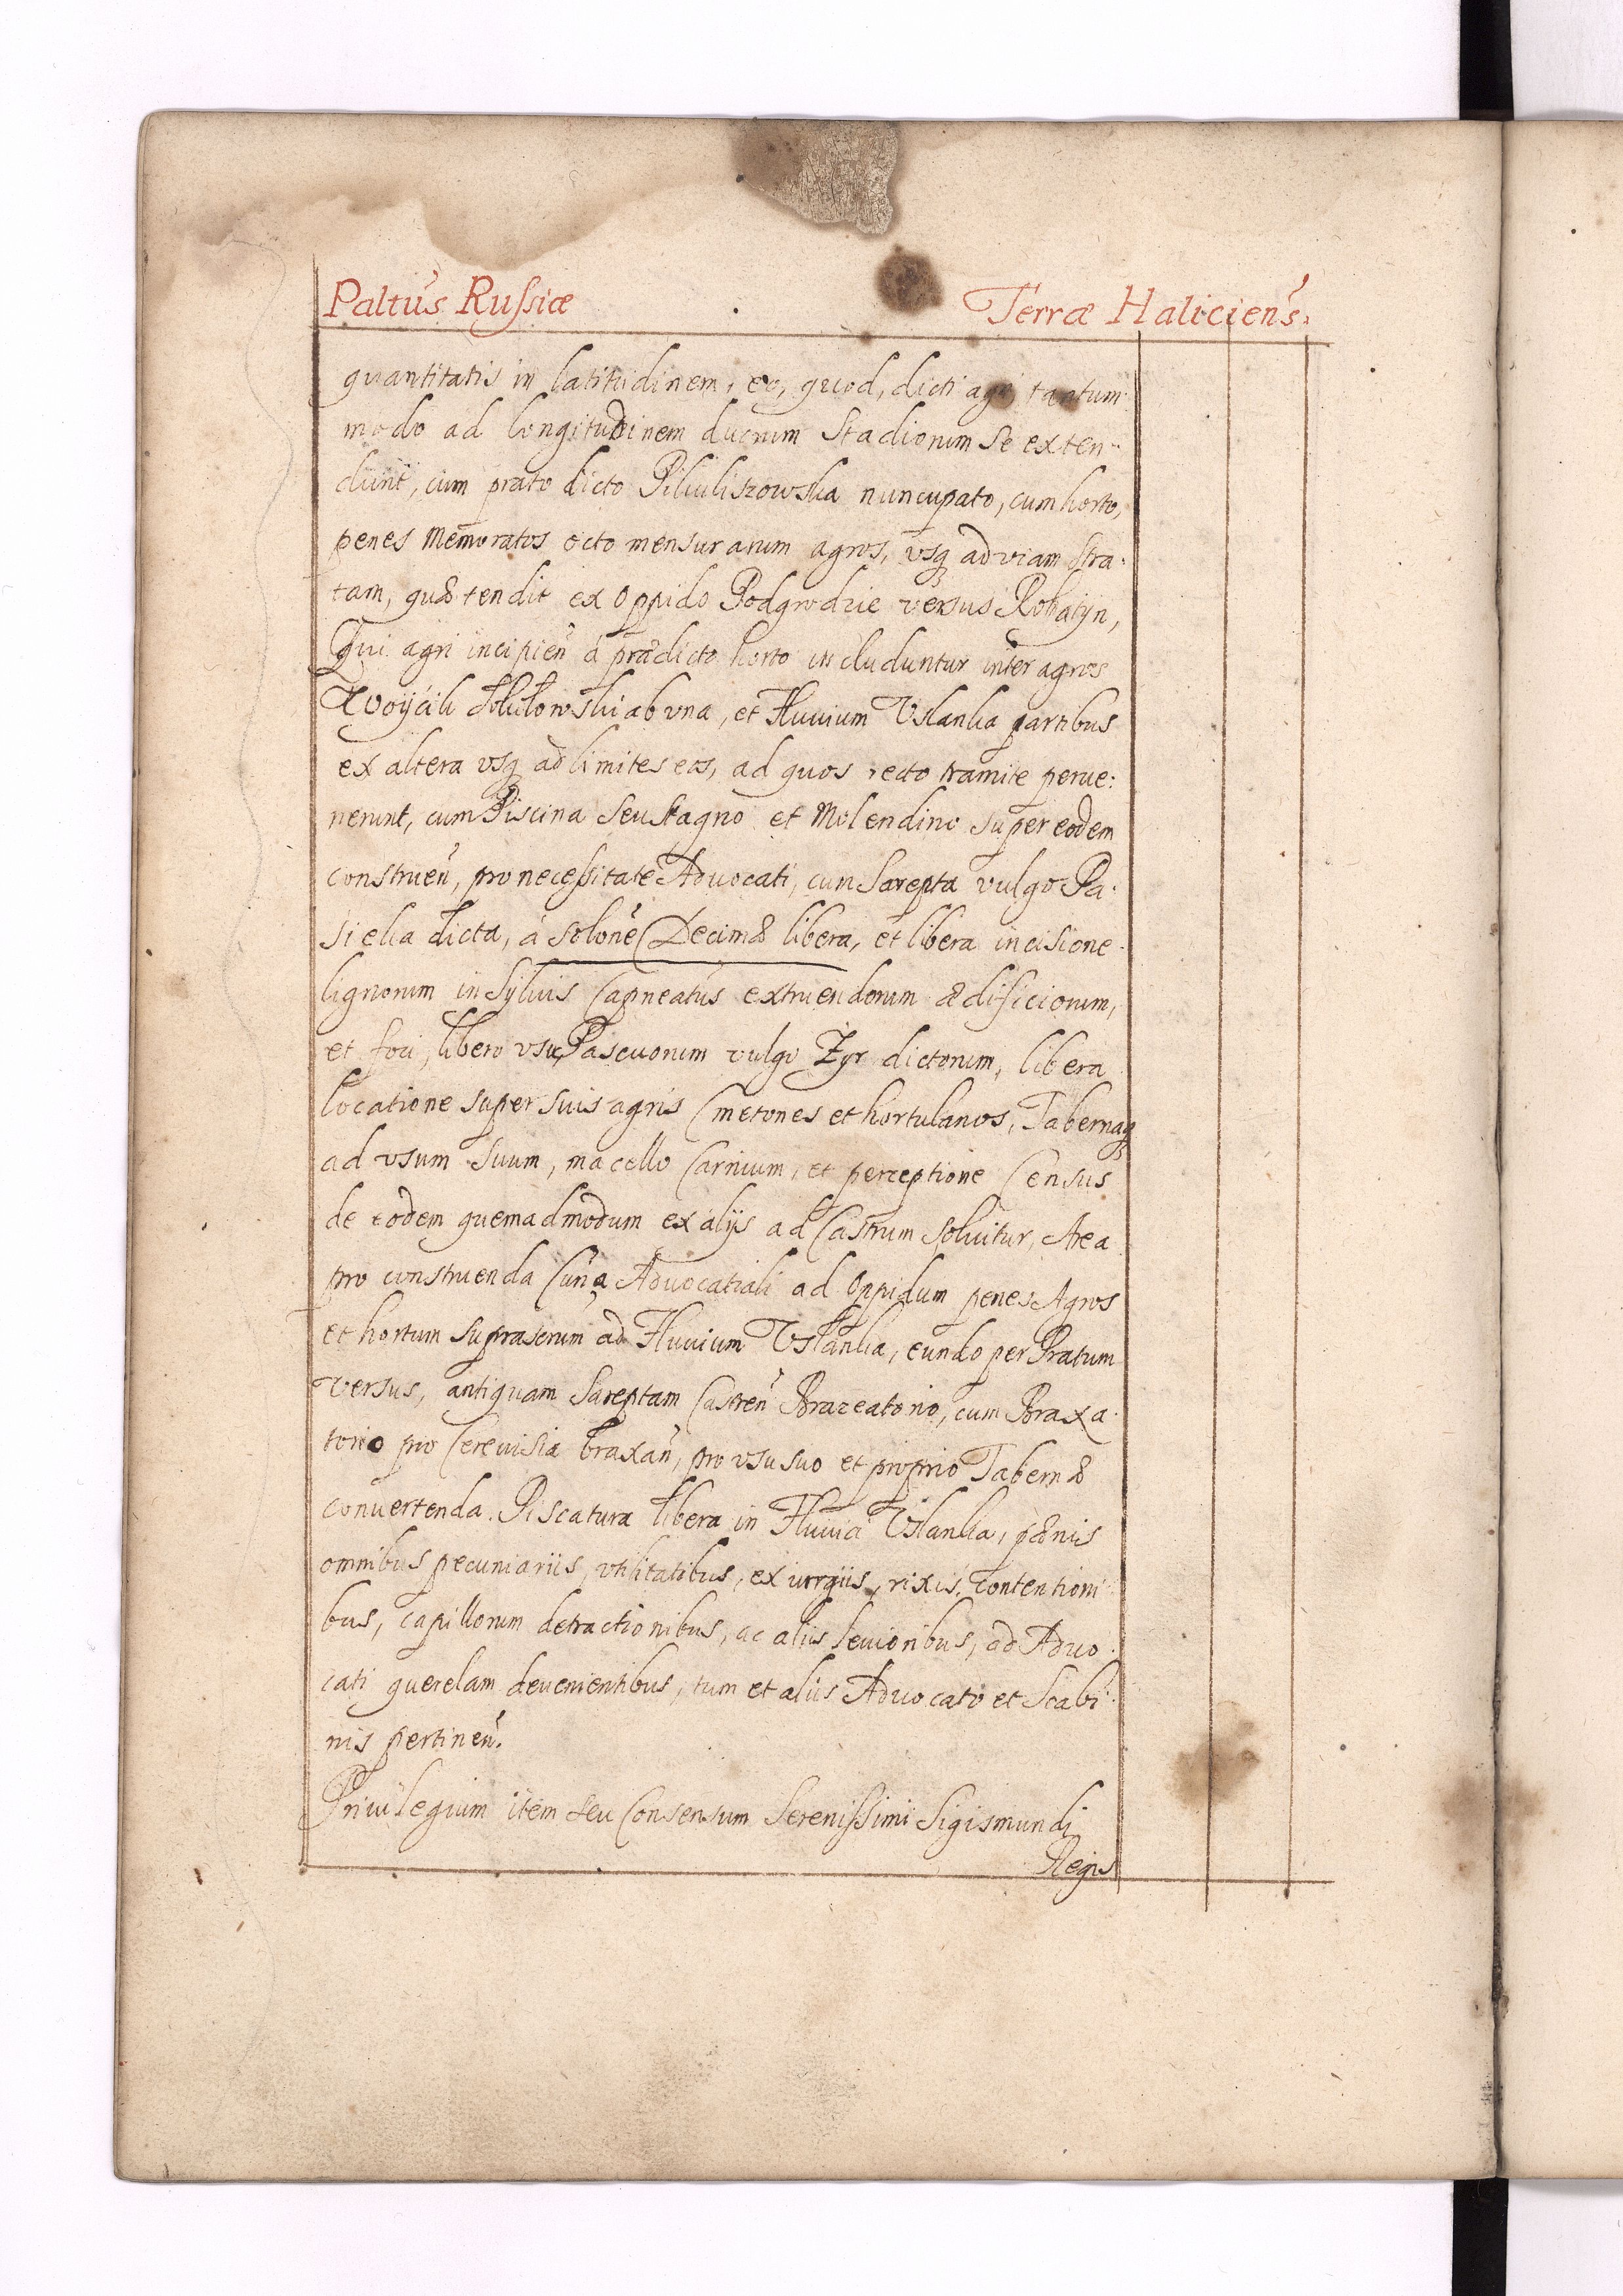 Paltús Russiæ
Terræ Haliciens̃.
quantitatis in latitudinem, eo, quod, dicti agri tantum
modo ad longitudinem duorum Stadiorum se exten-
dunt, cum prato dicto Pikuliszowska nuncupato, cum horto,
penes memoratos octo mensurarum agros, vsq̃ ad viam stra-
tam, quæ tendit ex Oppido Podgrodzie versus Rohatyn,
Qui agri incipien̄ á prædicto horto includuntur inter agros
Woÿcik ab vna, et Fluuium Uslanka partibus
ex altera vsq̃ ad limites eos, ad quos recto tramite perue:
nerunt, cum Piscina Seu Stagno et Molendino super eodem
construen̄, pro necessitate Advocati, cum Sarepta vulgo Pa-
sieka dicta, á Solōne Decimæ libera, et libera incisione
lignorum in Syluis Capneatús extruendorum ædificiorum,
et foci, libero vsu Pascuorum vulgo Zyr dictorum, libera
locatione super suis agris Cmetones et hortulanos, Tabernaq̃
ad vsum Suum, macello Carnium, et perceptione Census
de eodem quemadmodum ex alijs ad Castrum Soluitur, Area
pro construenda Curia Advocatiali ad Oppidum penes Agros
et hortum suprascrum̃ ad Fluuium Uslanka, eundo per Pratum
versus, antiquam Sareptam Castren̄ Brazeatorio, cum Braxa-
torio pro Cereuisia braxan̄, pro vsu suo et proprio Tabernæ
conuertenda. Piscatura libera in Fluuia Uslanka, pænis
omnibus pecuniariis, vtilitatibus, ex iurgiis, rixis, contentioni-
bus, capillorum detractionibus, ac aliis leuioribus, ad Advo-
cati querelam deuenientibus, tum et aliis Advocato et Scabi-
nis pertinen̄.
Priuilegium item seu Consensum Serenissimi Sigismundi
Regis